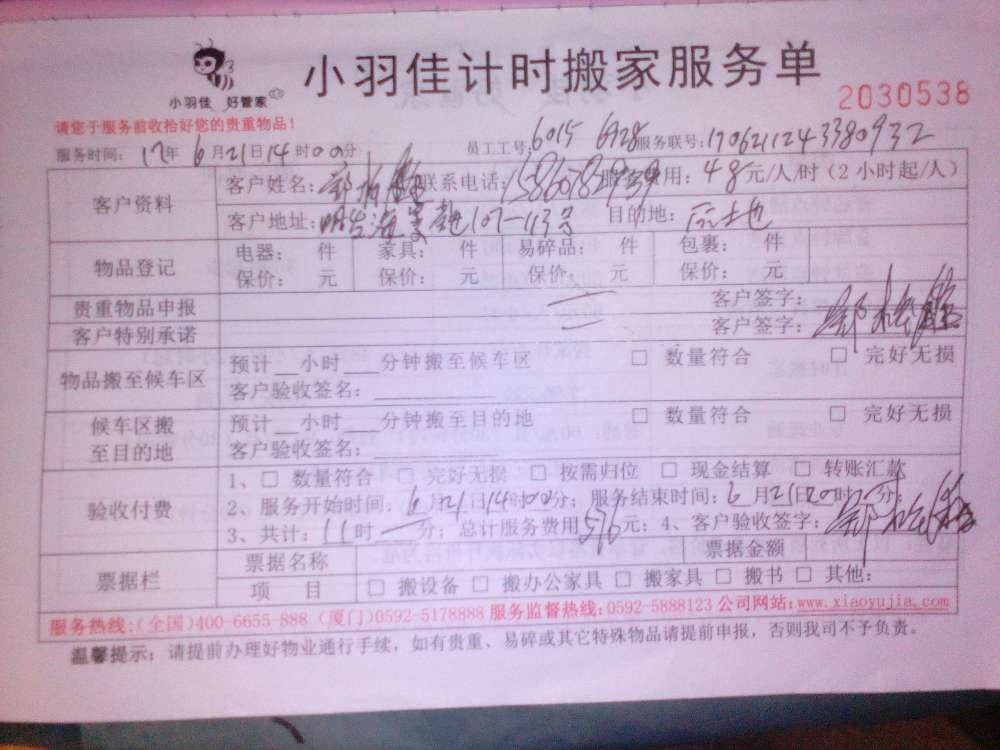 小羽佳计时搬家服务单
小羽佳 好管家
2030538
请您于服务前收拾好您的贵重物品!
服务时间: 17年 6月21日14时00分 员工工号: 6015 6928 服务联号: 1706211243380932
客户资料 客户姓名: 联系电话: 用: 48元/人/时(2小时起/人)
客户地址: 107-113号 目的地: 原土地
物品登记 电器: 件 家具: 件 易碎品: 件 包裹: 件
保价: 元 保价: 元 保价: 元 保价: 元
贵重物品申报 客户签字:
客户特别承诺 客户签字:
物品搬至候车区 预计__小时___分钟搬至候车区 □ 数量符合 □ 完好无损
客户验收签名:
候车区搬至目的地 预计__小时___分钟搬至目的地 □ 数量符合 □ 完好无损
客户验收签名:
验收付费 1、□ 数量符合 □ 完好无损 □ 按需归位 □ 现金结算 □ 转账汇款
2、服务开始时间: 6月21日14时00分; 服务结束时间: 6月21日20时 分;
3、共计: 11时一分; 总计服务费用576元; 4、客户验收签字:
票据栏 票据名称 票据金额
项 目 □ 搬设备 □ 搬办公家具 □ 搬家具 □ 搬书 □ 其他:
服务热线:(全国)400-6655-888 (厦门)0592-5178888 服务监督热线:0592-5888123 公司网站:www.xiaoyujia.com
温馨提示: 请提前办理好物业通行手续, 如有贵重、易碎或其它特殊物品请提前申报, 否则我司不予负责。